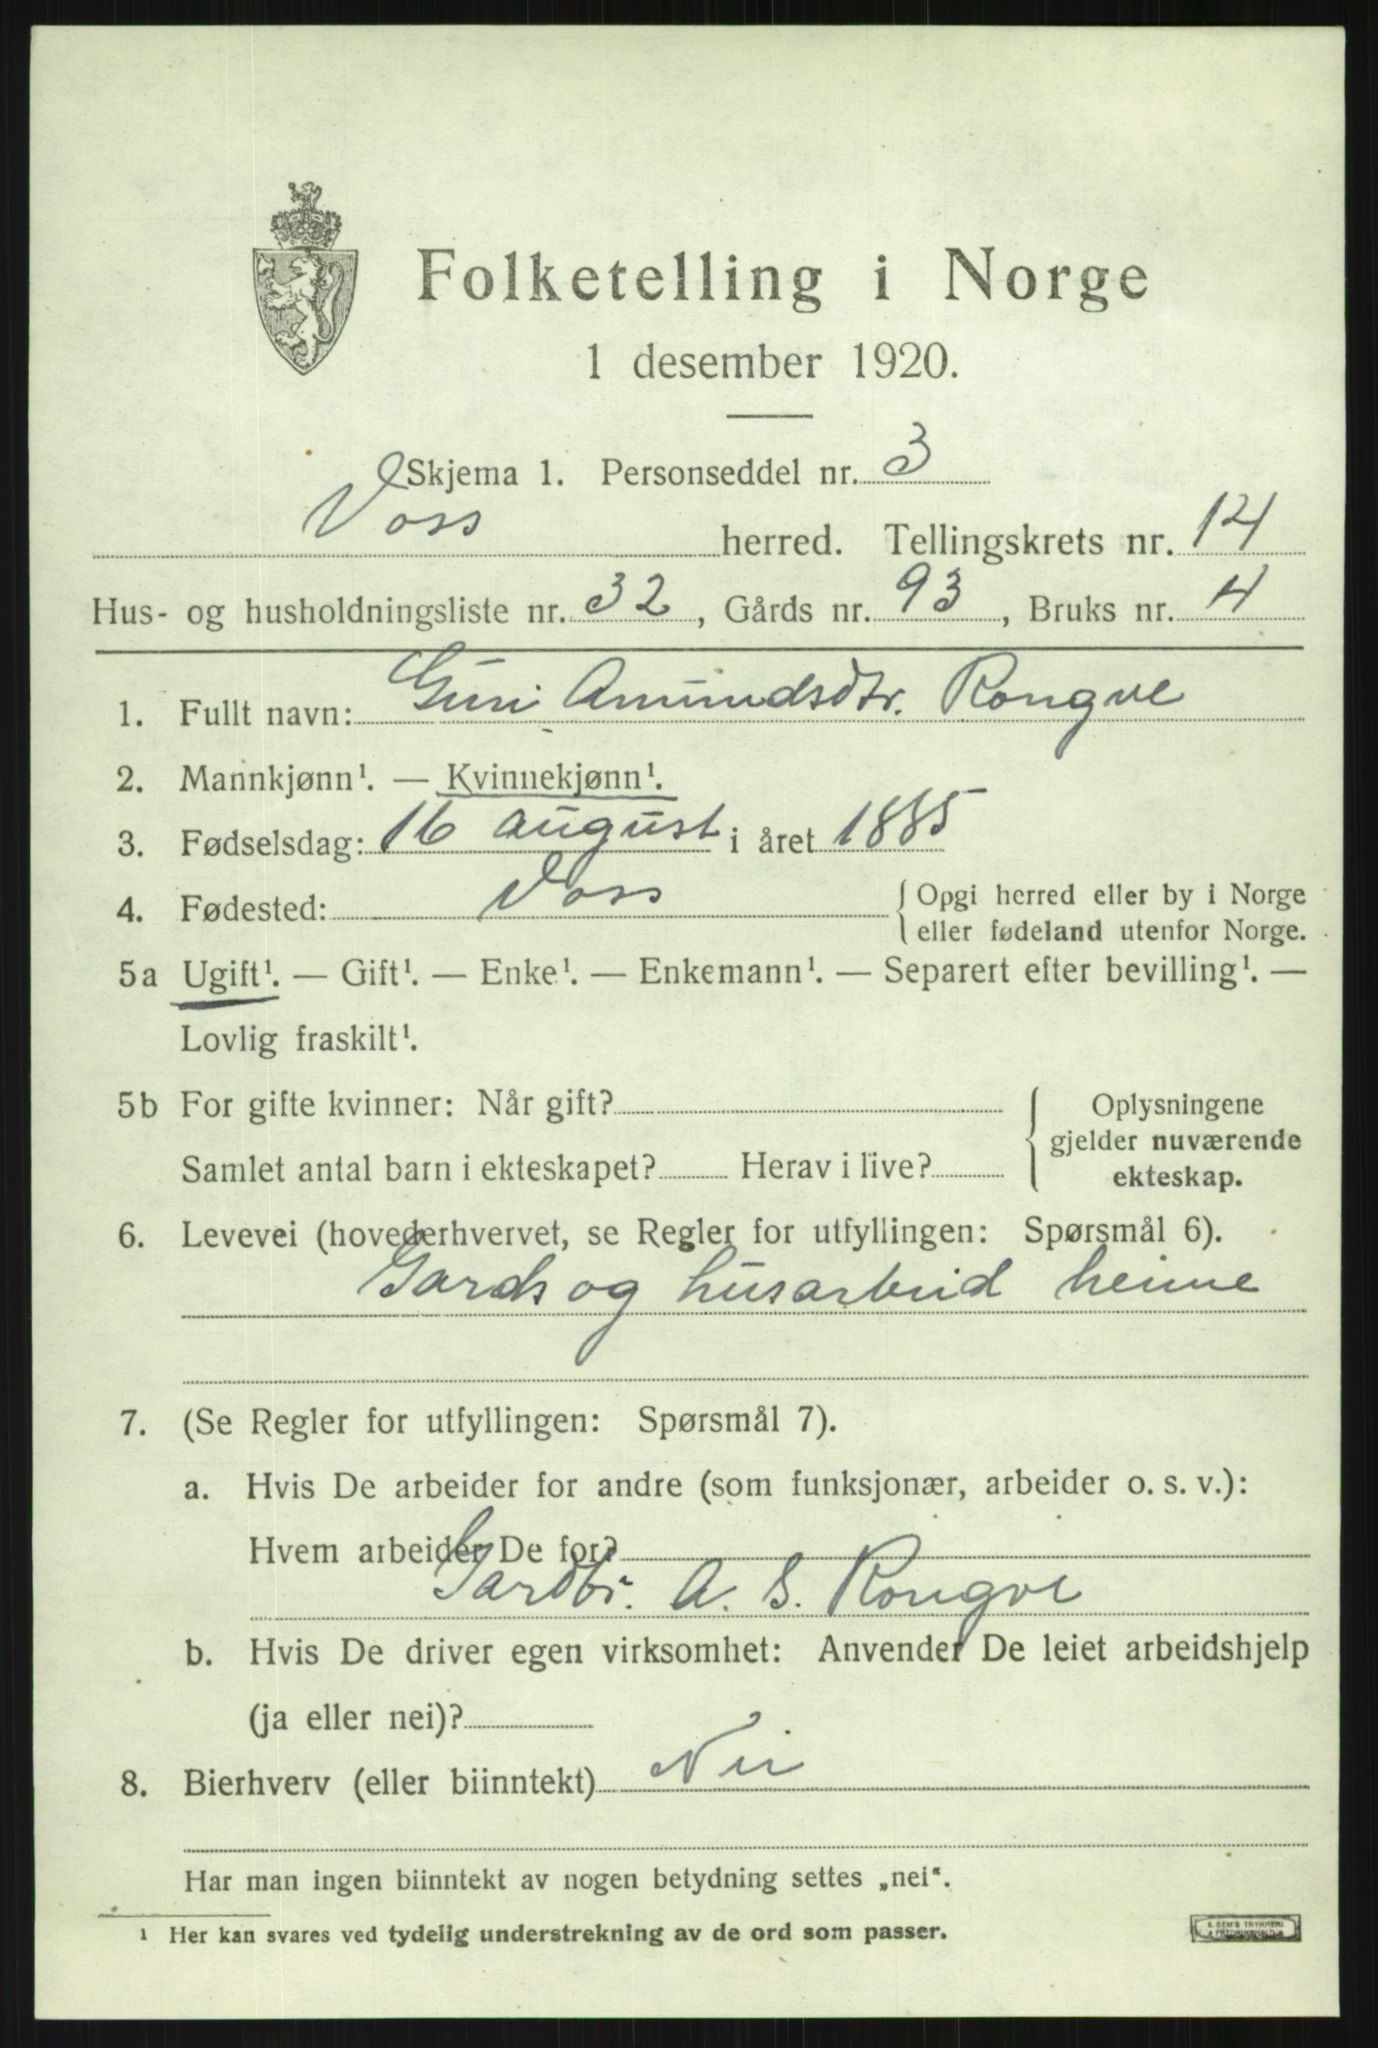 Folketelling i Norge
1 desember 1920.
Skjema 1. Personseddel nr. 3
Voss herred. Tellingskrets nr. 14
Hus- og husholdningsliste nr. 32, Gårds nr. 93, Bruks nr. 4
1. Fullt navn: Guri Amundsdtr. Rongve
2. Mannkjønn¹. — Kvinnekjønn¹.
3. Fødselsdag: 16 august i året 1885
4. Fødested: Voss { Opgi herred eller by i Norge
eller fødeland utenfor Norge.
5a Ugift¹. — Gift¹. — Enke¹. — Enkemann¹. — Separert efter bevilling¹. —
Lovlig fraskilt¹.
5b For gifte kvinner: Når gift? { Oplysningene
gjelder nuværende
ekteskap.
Samlet antal barn i ekteskapet? Herav i live?
6. Levevei (hovederhvervet, se Regler for utfyllingen: Spørsmål 6).
Gards og husarbeid heime
7. (Se Regler for utfyllingen: Spørsmål 7).
a. Hvis De arbeider for andre (som funksjonær, arbeider o. s. v.):
Hvem arbeider De for?
Gardbr. A. S. Rongve
b. Hvis De driver egen virksomhet: Anvender De leiet arbeidshjelp
(ja eller nei)?
8. Bierhverv (eller biinntekt) Nei
Har man ingen biinntekt av nogen betydning settes „nei“.
¹ Her kan svares ved tydelig understrekning av de ord som passer.